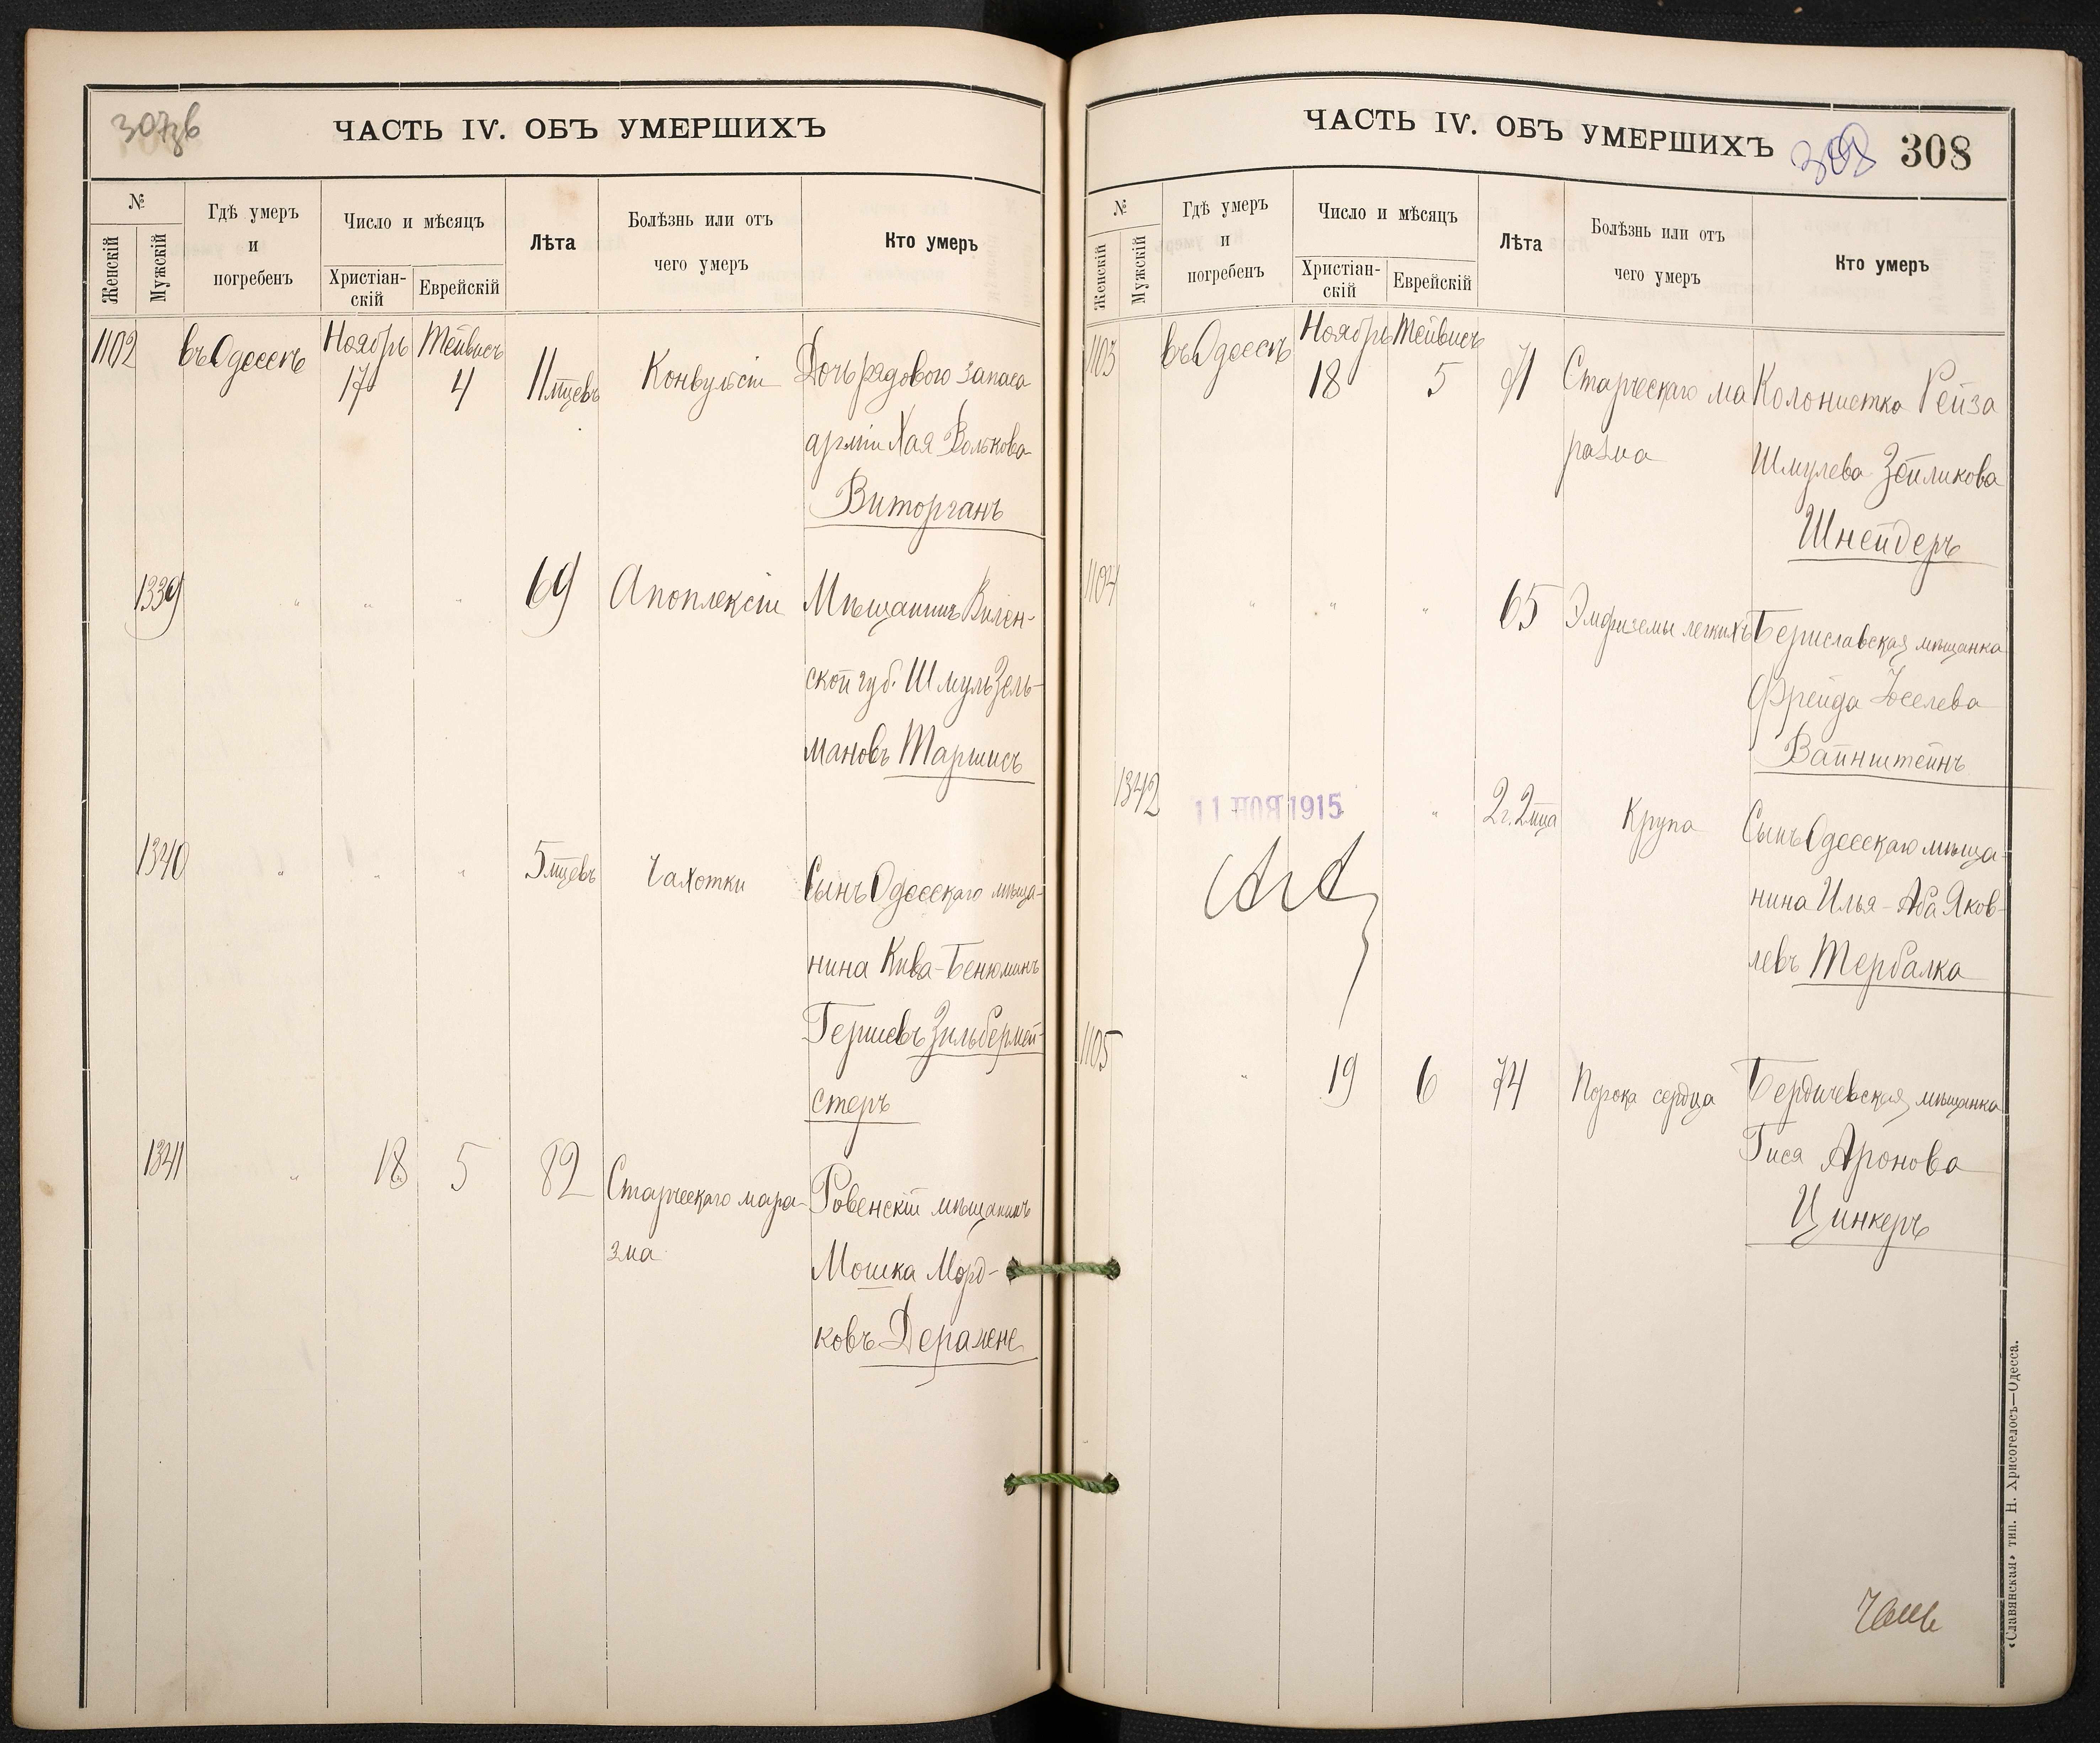 307об
ЧАСТЬ IV. ОБЪ УМЕРШИХЪ
№
Женскій
Мужскій
Гдѣ умеръ
и
погребенъ
Число и мѣсяцъ
Христіан-
скій
Еврейскій
Лѣта
Болѣзнь или отъ
чего умеръ
Кто умеръ
1102 въ Одессѣ Ноябрь 17 Тейвисъ 4 11 мцевъ Конвульсіи Дочь рядового запаса
арміи Хая Волькова
Виторганъ
1339 " " " 69 Апоплексіи Мѣщанинъ Вилен-
ской губ. Шмуль Зель-
мановъ Таршисъ
1340 " " " 5 мцевъ Чахотки Сынъ Одесскаго мѣща-
нина Кива-Бенюминъ
Гершевъ Зильбермей-
стеръ
1341 " 18 5 82 Старческаго мара-
зма
Ровенскій мѣщанинъ
Мошка Морд-
ковъ Деражне
ЧАСТЬ IV. ОБЪ УМЕРШИХЪ
308
№
Женскій
Мужскій
Гдѣ умеръ
и
погребенъ
Число и мѣсяцъ
Христіан-
скій
Еврейскій
Лѣта
Болѣзнь или отъ
чего умеръ
Кто умеръ
1103 въ Одессѣ Ноябрь 18 Тейвисъ 5 71 Старческаго ма
разма
Колонистка Рейза
Шмулева Зейликова
Шнейдеръ
1104 " " " 65 Эмфиземы легкихъ Бериславская мѣщанка
Фрейда Іоселева
Вайнштейнъ
1342 11 НОЯ 1915 " 2 г. 2 мца Крупа Сынъ Одесскаго мѣща-
нина Илья-Аба Яков-
левъ Тербалка
1105 " 19 6 74 Порока сердца Бердичевская мѣщанка
Гися Аронова
Цинкеръ
«Славянская» тип. Н. Хрисогелосъ—Одесса.